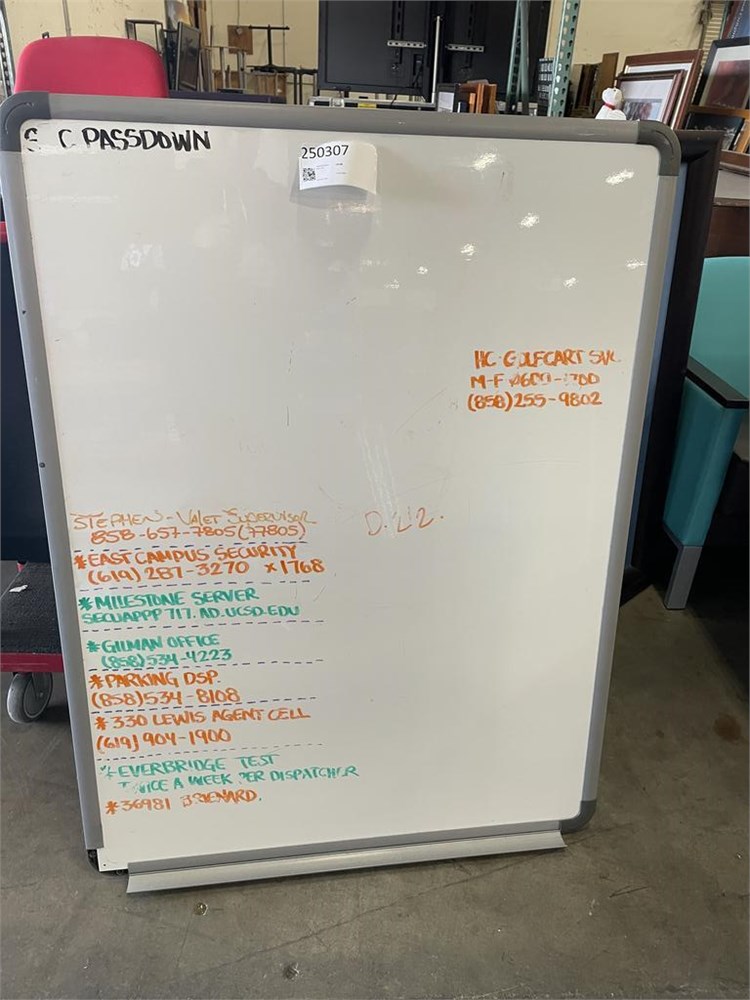 C PASSDOWN
250307
HC GOLFCART SVC
M-F 0600-1700
(858) 255-9802
STEPHEN - VALET SUPERVISOR
858-657-7805 (77805)
D.22.
*EAST CAMPUS SECURITY
(619) 287-3270 x1768
*MILESTONE SERVER
SECUAPPP717.AD.UCSD.EDU
*GILMAN OFFICE
(858) 534-4223
*PARKING DSP.
(858) 534-8108
*330 LEWIS AGENT CELL
(619) 904-1900
*EVERBRIDGE TEST
TWICE A WEEK PER DISPATCHER
*36981